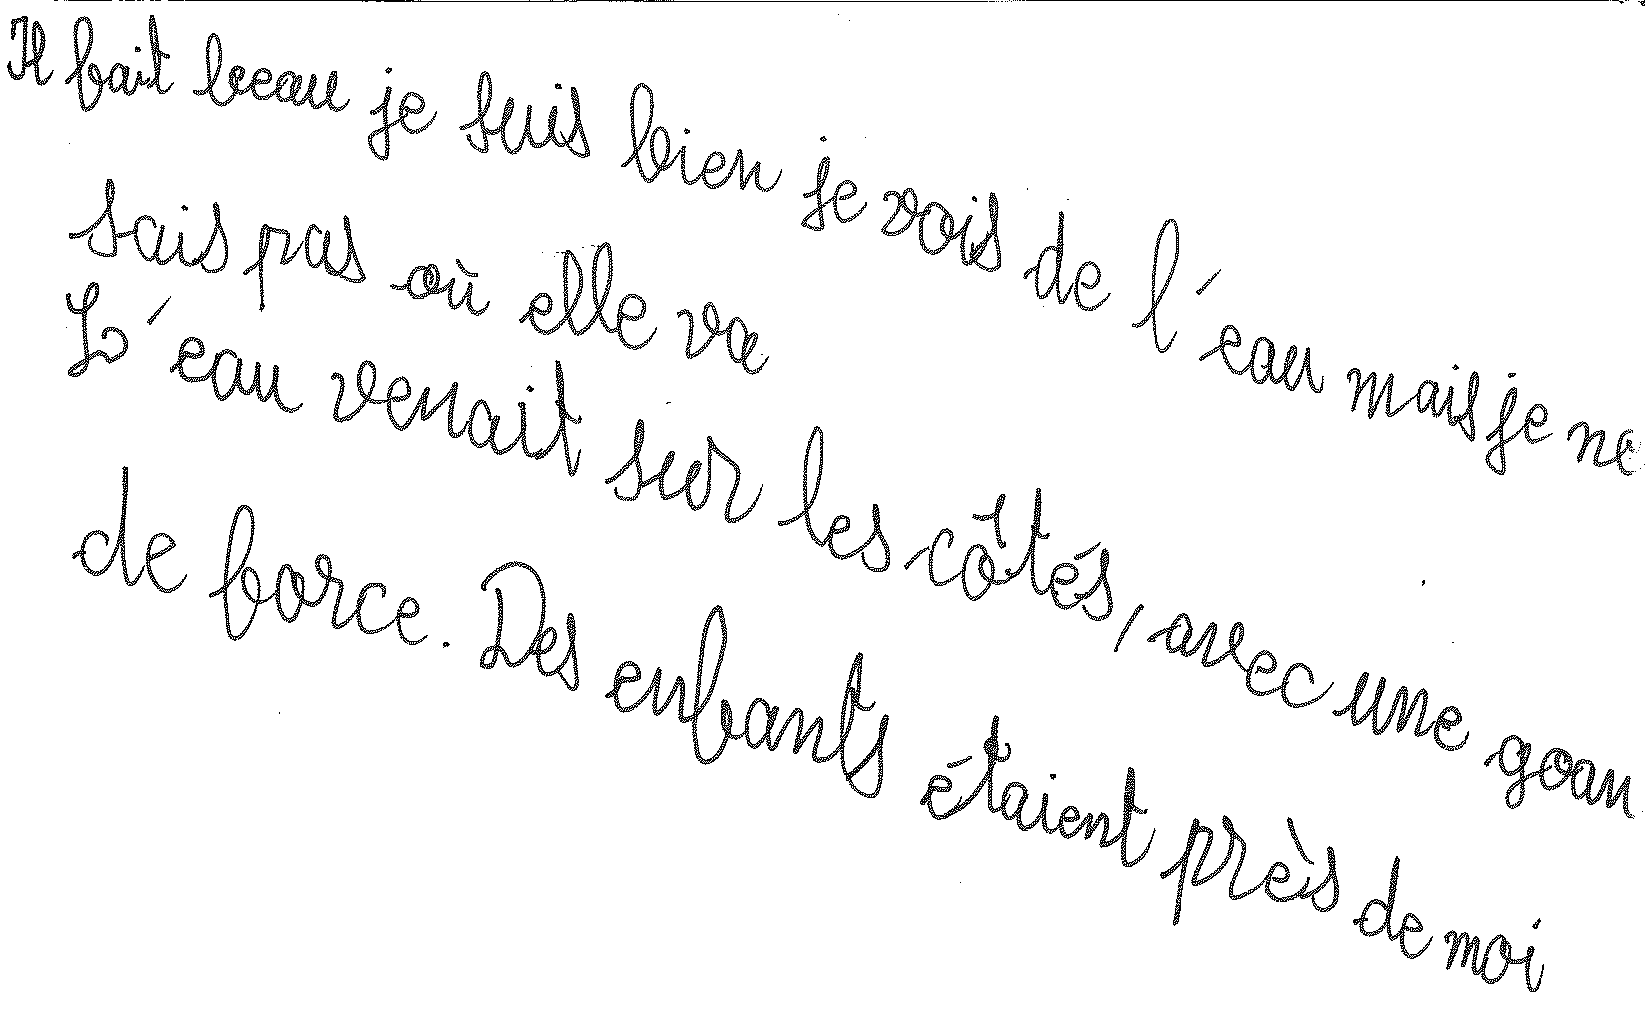 Il fait beau je suis bien je vois de l'eau mais je ne
sais pas où elle va
L'eau venait sur les côtés, avec une
de force. Des enfants étaient près de moi